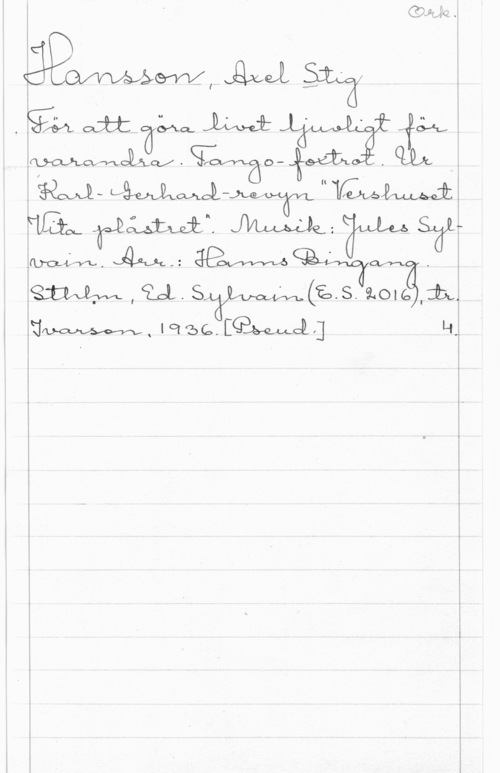 Ork.
Hansson, Axel Stig
För att göra livet ljuvligt för
varandra. Tango-foxtrot. Ur
Karl-Gerhard-revyn "Vershuset
Vita plåstret". Musik: Jules Syl-
vain. Arr.: Hanns Bingang.
Sthlm, Ed. Sylvain (E.S. 2016), tr.
Ivarson, 1936. [Pseud.] 4.